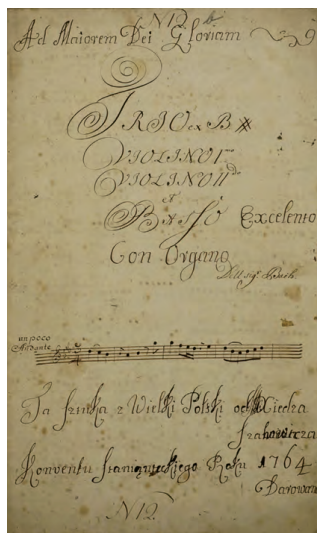 N12 b
Ad Maiorem Dei Gloriam 9
TRIO ex B
VIOLINO I mo
VIOLINO II do
et
BASSO Excelento
Con Organo
Del Sigr Bach
un poco
Andante
Ta sztuka z Wielki Polski od Xiedza
Konventu Raku 1764
Darowana
N12